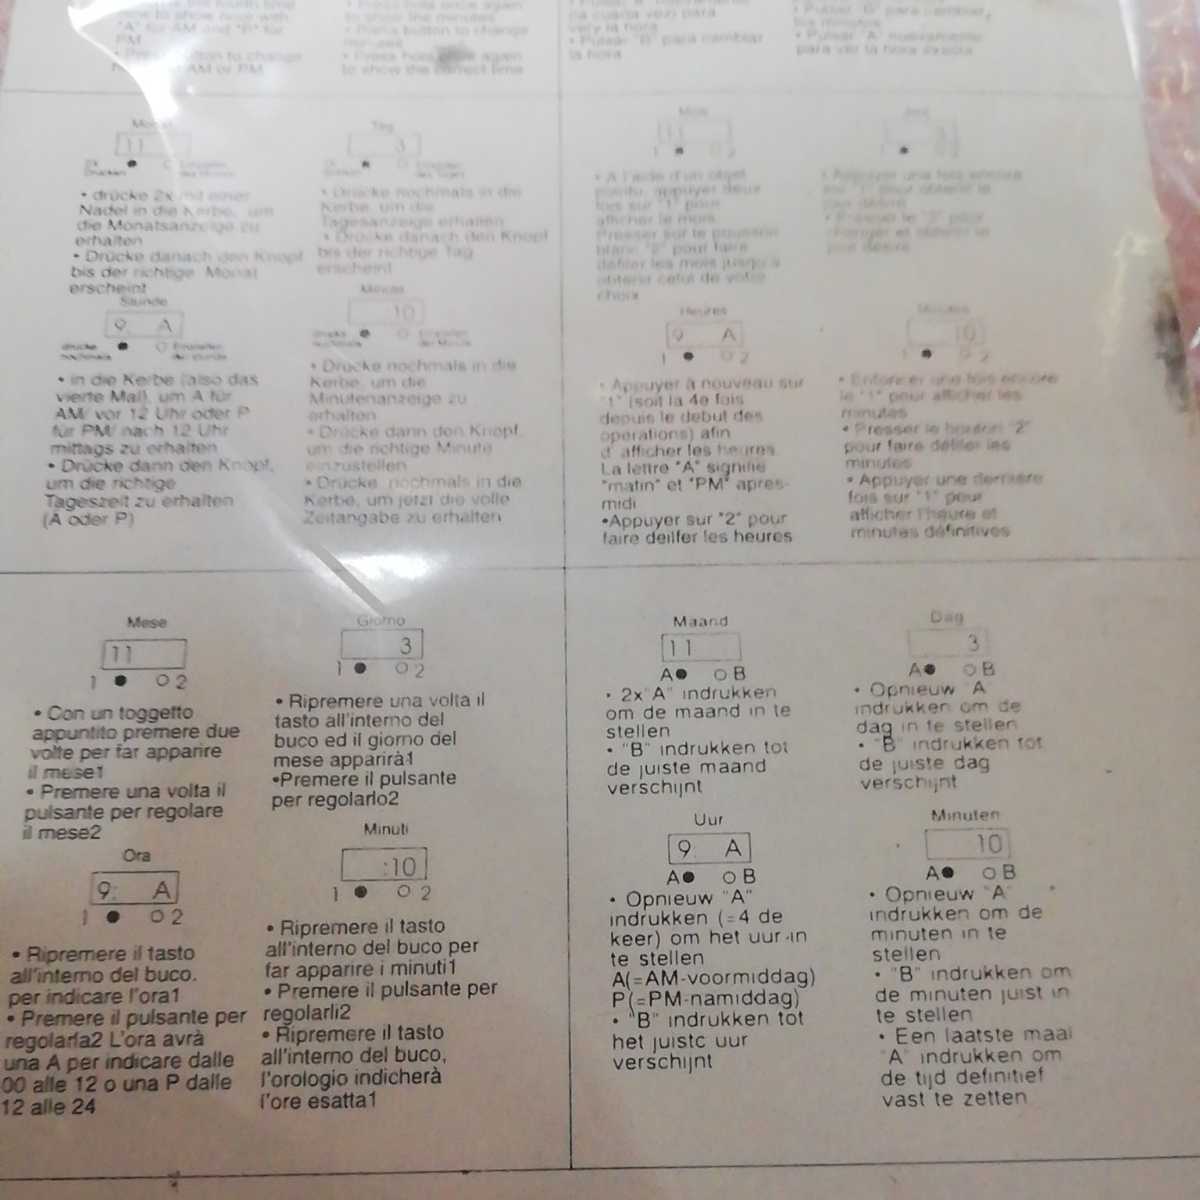 "A" für AM and "P" für
PM
to show the minutes
• Press button to change
minutes
to show the correct time
na cuarta vez) para
very la hora
• Pulsar "B" para cambiar
la hora
• Pulsar "B" para cambiar,
los minutos
• Pulsar "A" nuevamente
para ver la hora exacta
11
• drücke 2x mit einer
Nadel in die Kerbe, um
die Monatsanzeige zu
erhalten
• Drücke danach den Knopf
bis der richtige Monat
erscheint
Tag
3
• Drücke nochmals in die
Kerbe, um die
Tagesanzeige erhalten
• Drücke danach den Knopf
bis der richtige Tag
erscheint
Stunde
9: A
drücke
nochmals
Einstellen
der Stunde
• in die Kerbe (also das
vierte Mal), um A für
AM/ vor 12 Uhr oder P
für PM/ nach 12 Uhr
mittags zu erhalten
• Drücke dann den Knopf,
um die richtige
Tageszeit zu erhalten
(A oder P)
10
• Drücke nochmals in die
Kerbe, um die
Minutenanzeige zu
erhalten
• Drücke dann den Knopf,
um die richtige Minute
einzustellen
• Drücke nochmals in die
Kerbe, um jetzt die volle
Zeitangabe zu erhalten
Mois
11
1 2
• A l'aide d'un objet
pointu, appuyer deux
fois sur "1" pour
afficher le mois
Presser sur le poussoir
blanc "2" pour faire
défiler les mois jusqu'à
obtenir celui de votre
choix
3
1 2
• Appuyer une fois encore
sur "1" pour obtenir le
jour désiré
• Presser le "2" pour
changer et obtenir le
jour désiré
Heures
9 A
1 2
• Appuyer à nouveau sur
"1" (soit la 4e fois
depuis le debut des
operations) afin
d' afficher les heures.
La lettre "A" signifie
"matin" et "PM" apres-
midi
•Appuyer sur "2" pour
faire deilfer les heures
Minutes
10
1 2
• Enfoncer une fois encore
le "1" pour afficher les
minutes
• Presser le bouton "2"
pour faire défiler les
minutes
• Appuyer une derniére
fois sur "1" pour
afficher l'heure et
minutes définitives
Mese
11
1 2
• Con un toggetto
appuntito premere due
volte per far apparire
il mese1
• Premere una volta il
pulsante per regolare
il mese2
Giorno
3
1 2
• Ripremere una volta il
tasto all'interno del
buco ed il giorno del
mese apparirà1
•Premere il pulsante
per regolarlo2
Ora
9: A
1 2
• Ripremere il tasto
all'interno del buco.
per indicare l'ora1
• Premere il pulsante per
regolarla2 L'ora avrà
una A per indicare dalle
00 alle 12 o una P dalle
12 alle 24
Minuti
:10
1 2
• Ripremere il tasto
all'interno del buco per
far apparire i minuti1
• Premere il pulsante per
regolarli2
• Ripremere il tasto
all'interno del buco,
l'orologio indicherà
l'ore esatta1
Maand
11
A B
• 2x"A" indrukken
om de maand in te
stellen
• "B" indrukken tot
de juiste maand
verschijnt
Dag
3
A B
• Opnieuw "A"
indrukken om de
dag in te stellen
• "B" indrukken tot
de juiste dag
verschijnt
Uur
9: A
A B
• Opnieuw "A"
indrukken (=4 de
keer) om het uur in
te stellen
A(=AM-voormiddag)
P(=PM-namiddag)
• "B" indrukken tot
het juistc uur
verschijnt
Minuten
10
A B
• Opnieuw "A"
indrukken om de
minuten in te
stellen
• "B" indrukken om
de minuten juist in
te stellen
• Een laatste maal
"A" indrukken om
de tijd definitief
vast te zetten